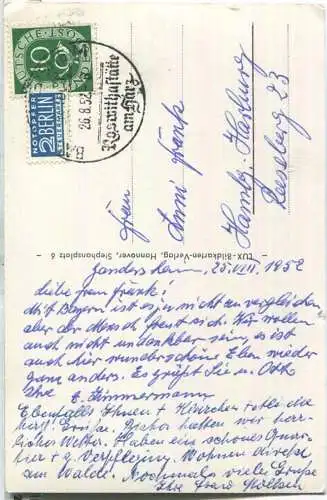 DEUTSCHE POST
10
NOTOPFER
2 BERLIN
STEUERMARKE
26.8.52
Roswithastätte
am Harz
Frau
Anni Frank
Hambg.-Harburg
Reeseberg 23
LUX-Bildkarten-Verlag, Hannover, Stephansplatz 6
Gandersheim, 25.VIII. 1952
Liebe Frau Franke!
Mit Bayern ist es ja nicht zu vergleichen
aber der Mensch freut sich. Wir wollen
auch nicht undankbar sein, es ist
auch hier wunderschön. Eben wieder
ganz anders. Es grüßt Sie u. Otto
Ihre E. Zimmermann
Ebenfalls Ihnen + 
 Grüße. Bisher hatten wir herr-
liches Wetter. Haben ein schönes Quar-
tier + g. Verpflegung. Wohnen direkt
am Walde. Nochmals viele Grüße
Ihre Frau